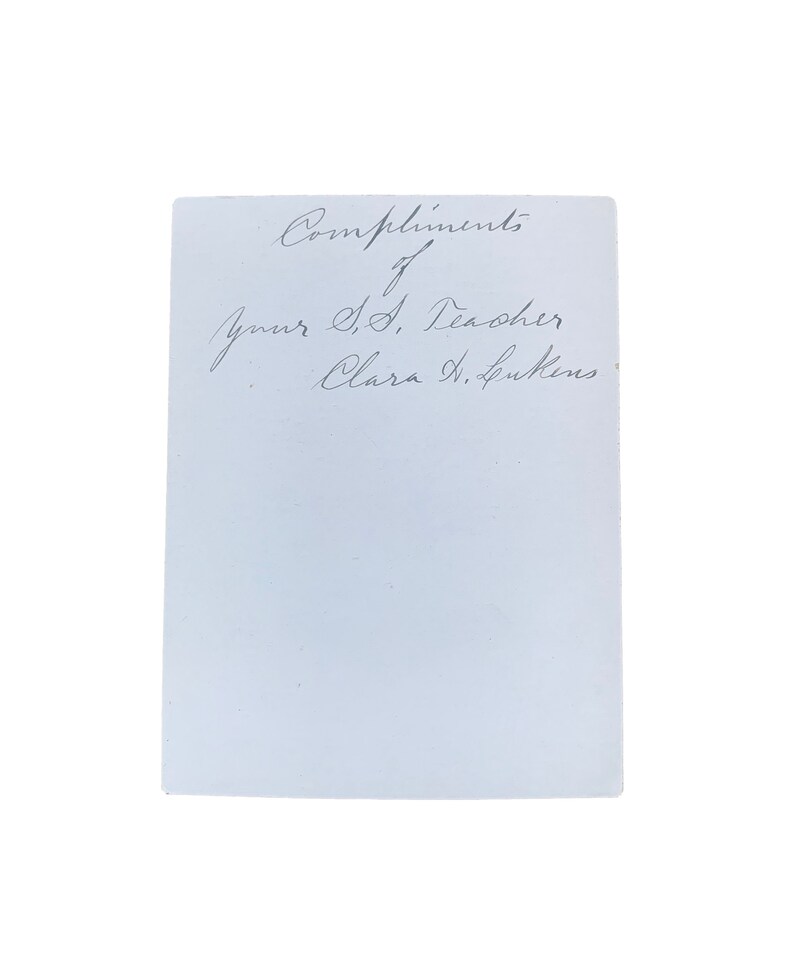 Compliments
of
Your S.S. Teacher
Clara H. Lukens